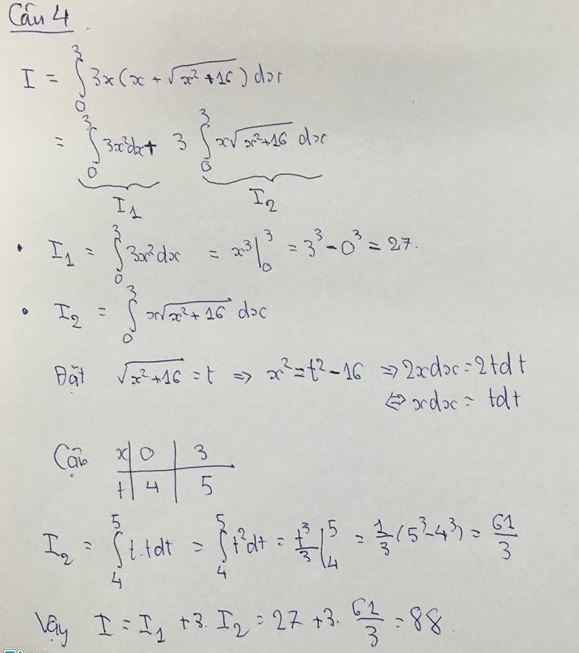 Câu 4
I = ∫₀³ 3x(x + √(x² + 16)) dx
= ∫₀³ 3x²dx + 3 ∫₀³ x√(x²+16) dx
I₁ I₂
• I₁ = ∫₀³ 3x² dx = x³|₀³ = 3³ - 0³ = 27.
• I₂ = ∫₀³ x√(x² + 16) dx
Đặt √(x²+16) = t ⇒ x² = t² - 16 ⇒ 2xdx = 2tdt
⇔ xdx = tdt
Cận x 0 3
t 4 5
I₂ = ∫₄⁵ t.tdt = ∫₄⁵ t²dt = t³/3|₄⁵ = 1/3 (5³-4³) = 61/3
Vậy I = I₁ + 3. I₂ = 27 + 3. 61/3 = 88.